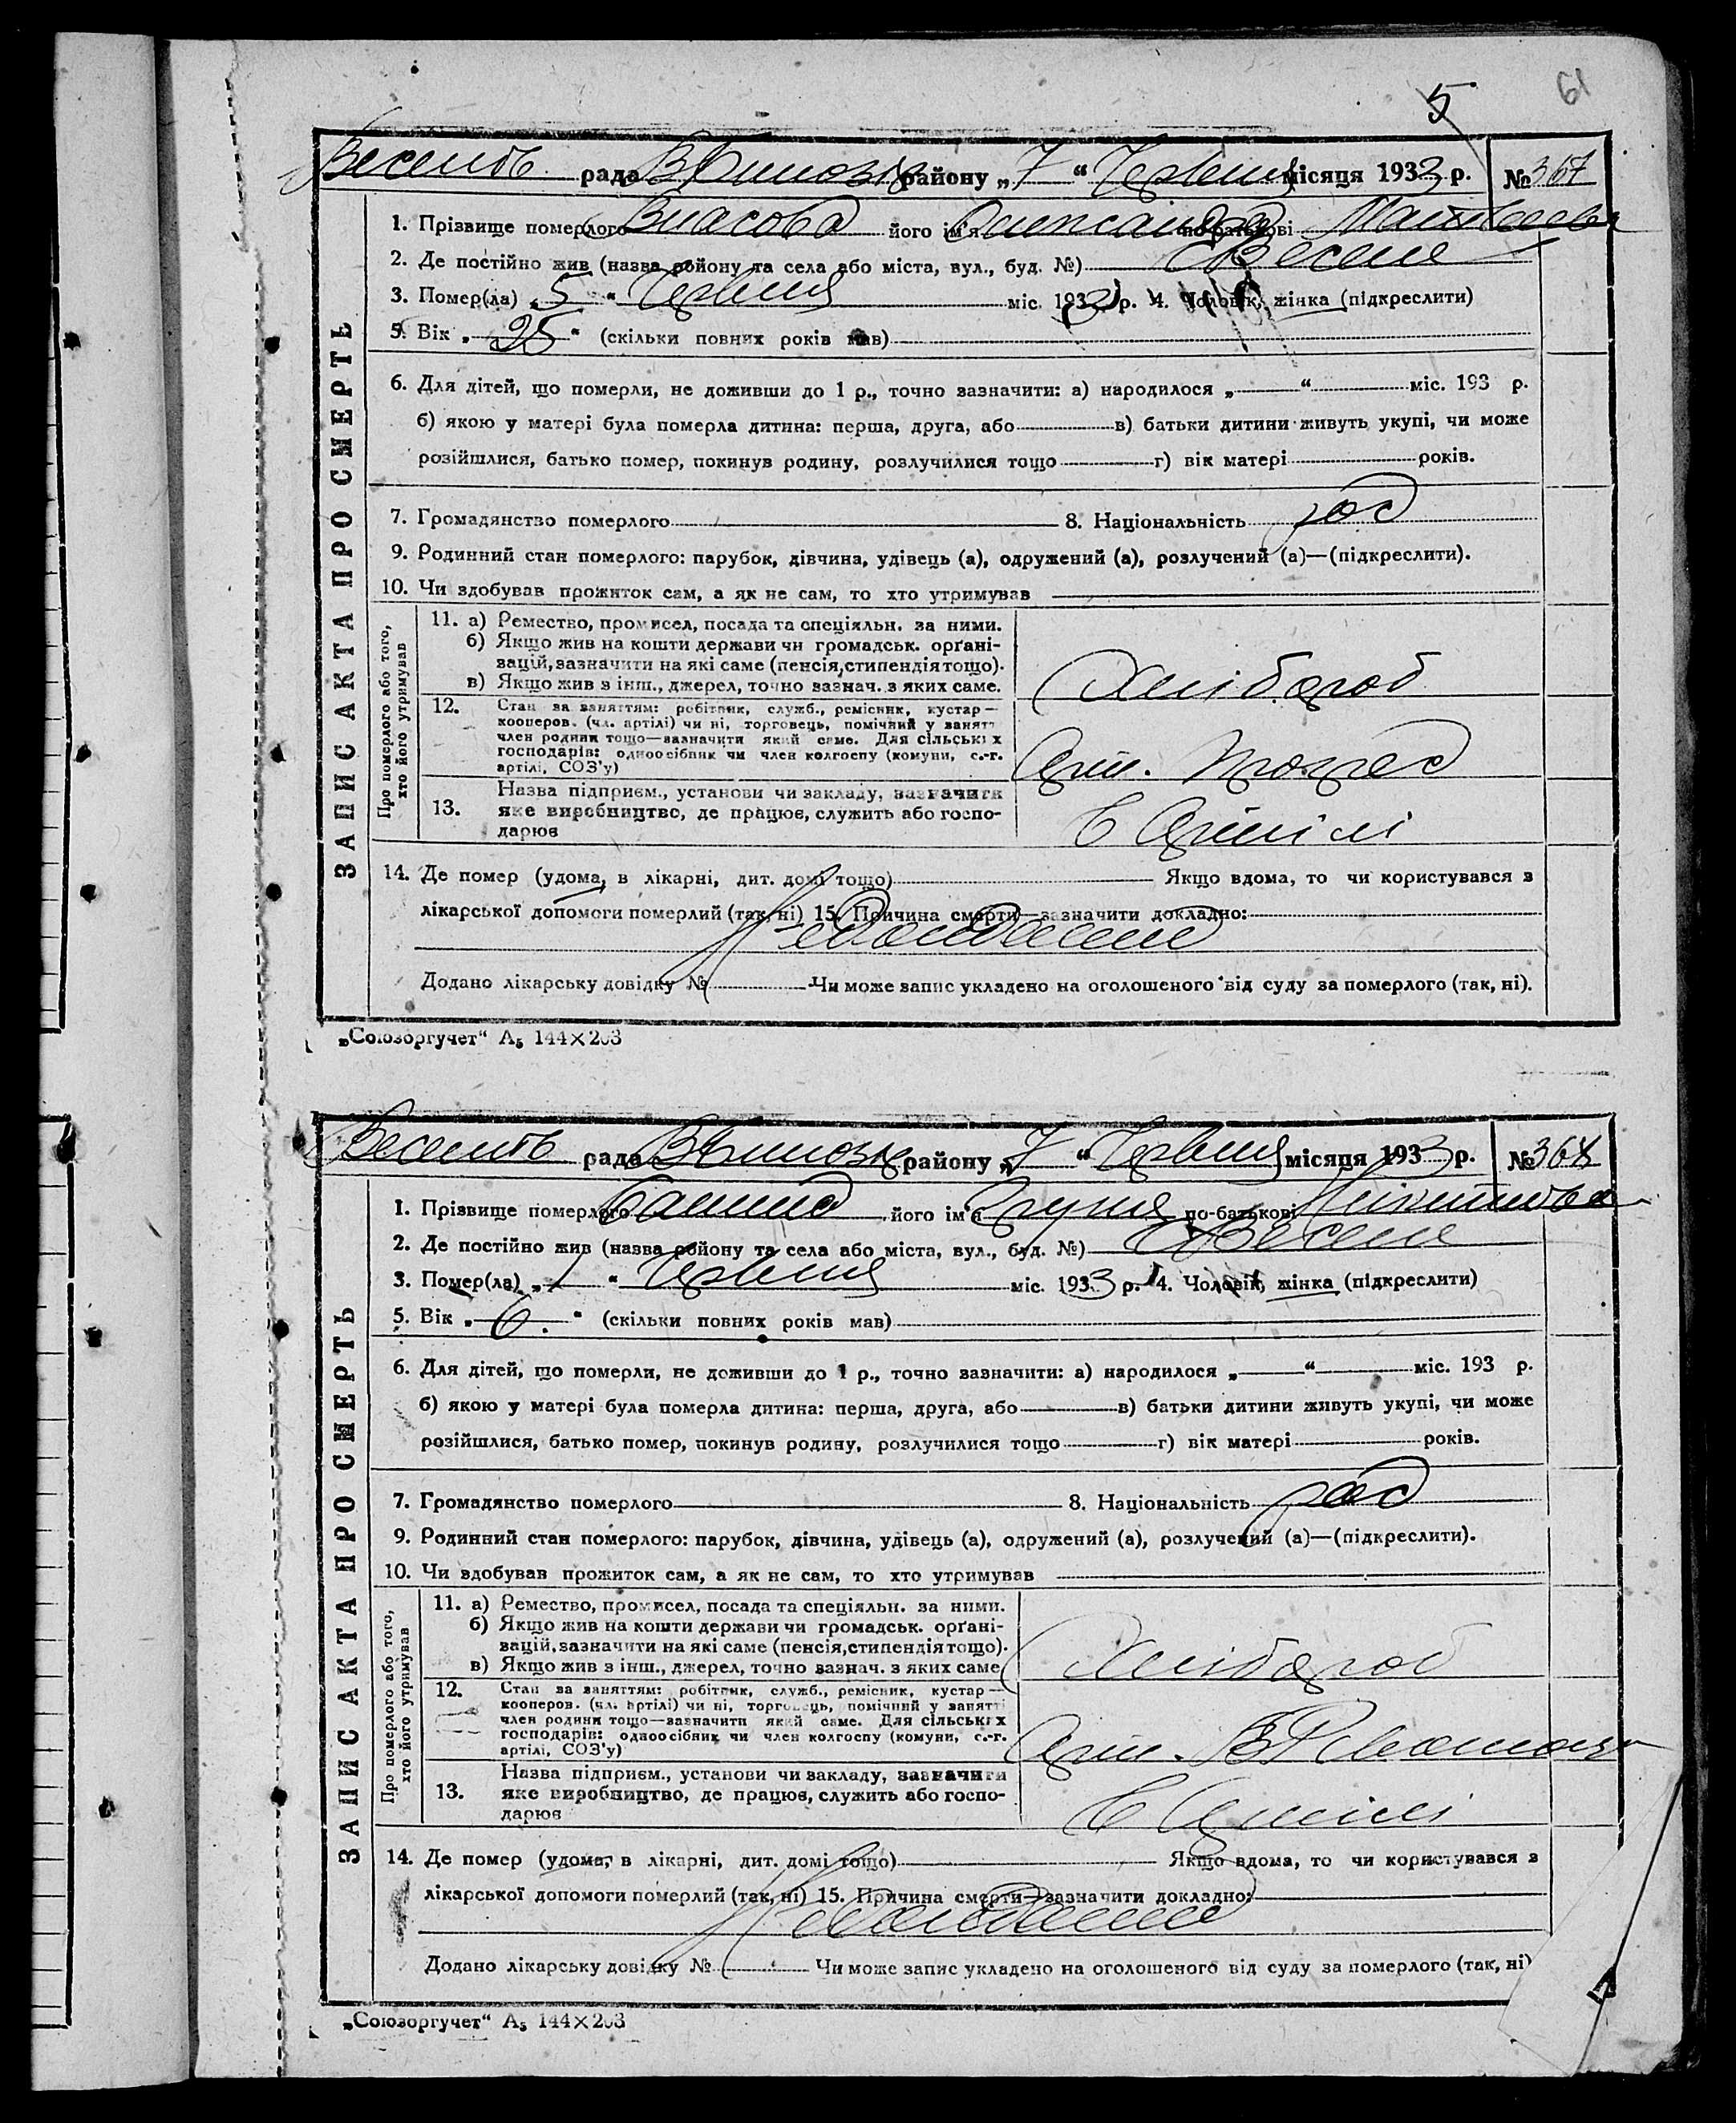 5
61
Веселів рада району „7“ Червня місяця 1933 р. № 367
ЗАПИС АКТА ПРО СМЕРТЬ
1. Прізвище померлого Власова його ім'я Олександра по-батькові Матвеева
2. Де постійно жив (назва району та села або міста, вул., буд. №) с Веселе
3. Помер(ла) „5“ Червня міс. 1933 р. 4. Чоловік, жінка (підкреслити)
5. Вік „25“ (скільки повних років мав)
6. Для дітей, що померли, не доживши до 1 р., точно зазначити: а) народилося „ “ міс. 193 р.
б) якою у матері була померла дитина: перша, друга, або в) батьки дитини живуть укупі, чи може
розійшлися, батько помер, покинув родину, розлучилися тощо г) вік матері років.
7. Громадянство померлого 8. Національність рос
9. Родинний стан померлого: парубок, дівчина, удівець (а), одружений (а), розлучений (а)—(підкреслити).
10. Чи здобував прожиток сам, а як не сам, то хто утримував
Про померлого або того,
хто його утримував
11. а) Ремество, промисел, посада та спеціяльн. за ними.
б) Якщо жив на кошти держави чи громадськ. орґані-
зацій, зазначити на які саме (пенсія, стипендія тощо).
в) Якщо жив з інш., джерел, точно зазнач. з яких саме.
Хлібороб
12. Стан за заняттям: робітник, служб., ремісник, кустар—
кооперов. (чл. артілі) чи ні, торговець, помічний у занятт
член родини тощо—зазначити який саме. Для сільських
господарів: одноосібник чи член колгоспу (комуни, с.-г.
артілі, СОЗ'у)
Арт. Прогрес
Назва підприєм., установи чи закладу, зазначити
13. яке виробництво, де працює, служить або госпо-
дарює
в Артілі
14. Де помер (удома, в лікарні, дит. домі тощо) Якщо вдома, то чи користувався з
лікарської допомоги померлий (так, ні) 15. Причина смерти—зазначити докладно:
Додано лікарську довідку № Чи може запис укладено на оголошеного від суду за померлого (так, ні).
„Союзоргучет“ А₅ 144×203
Веселів рада району „7“ Червня місяця 1933 р. № 368
ЗАПИС АКТА ПРО СМЕРТЬ
1. Прізвище померлого його ім'я по-батькові Нікітовна
2. Де постійно жив (назва району та села або міста, вул., буд. №) с Веселе
3. Помер(ла) „1“ Червня міс. 1933 р. 4. Чоловік, жінка (підкреслити)
5. Вік „6.“ (скільки повних років мав)
6. Для дітей, що померли, не доживши до 1 р., точно зазначити: а) народилося „ “ міс. 193 р.
б) якою у матері була померла дитина: перша, друга, або в) батьки дитини живуть укупі, чи може
розійшлися, батько помер, покинув родину, розлучилися тощо г) вік матері років.
7. Громадянство померлого 8. Національність рос
9. Родинний стан померлого: парубок, дівчина, удівець (а), одружений (а), розлучений (а)—(підкреслити).
10. Чи здобував прожиток сам, а як не сам, то хто утримував
Про померлого або того,
хто його утримував
11. а) Ремество, промисел, посада та спеціяльн. за ними.
б) Якщо жив на кошти держави чи громадськ. орґані-
зацій, зазначити на які саме (пенсія, стипендія тощо).
в) Якщо жив з інш., джерел, точно зазнач. з яких саме
Хлібороб
12. Стан за заняттям: робітник, служб., ремісник, кустар—
кооперов. (чл. артілі) чи ні, торговець, помічний у занятті
член родини тощо—зазначити який саме. Для сільських
господарів: одноосібник чи член колгоспу (комуни, с.-г.
артілі, СОЗ'у)
Арт.
Назва підприєм., установи чи закладу, зазначити
13. яке виробництво, де працює, служить або госпо-
дарює
в Артілі
14. Де помер (удома, в лікарні, дит. домі тощо) Якщо вдома, то чи користувався з
лікарської допомоги померлий (так, ні) 15. Причина смерти—зазначити докладно:
Додано лікарську довідку № Чи може запис укладено на оголошеного від суду за померлого (так, ні)
„Союзоргучет“ А₅ 144×203